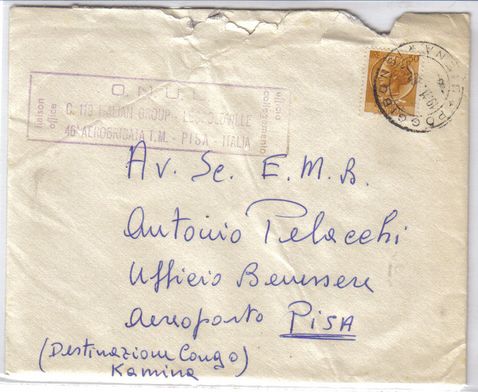 O.N.U.
liaison office
C. 119 ITALIAN GROUP - LEOPOLDVILLE
46ª AEROBRIGATA T.M. - PISA - ITALIA
ufficio collegamento
POGGIBONSI
SIENA
Av. Sc. E. M. B.
Antonio Pelacchi
Ufficio Benessere
Aeroporto PISA
(Destinazione Congo)
Kamina